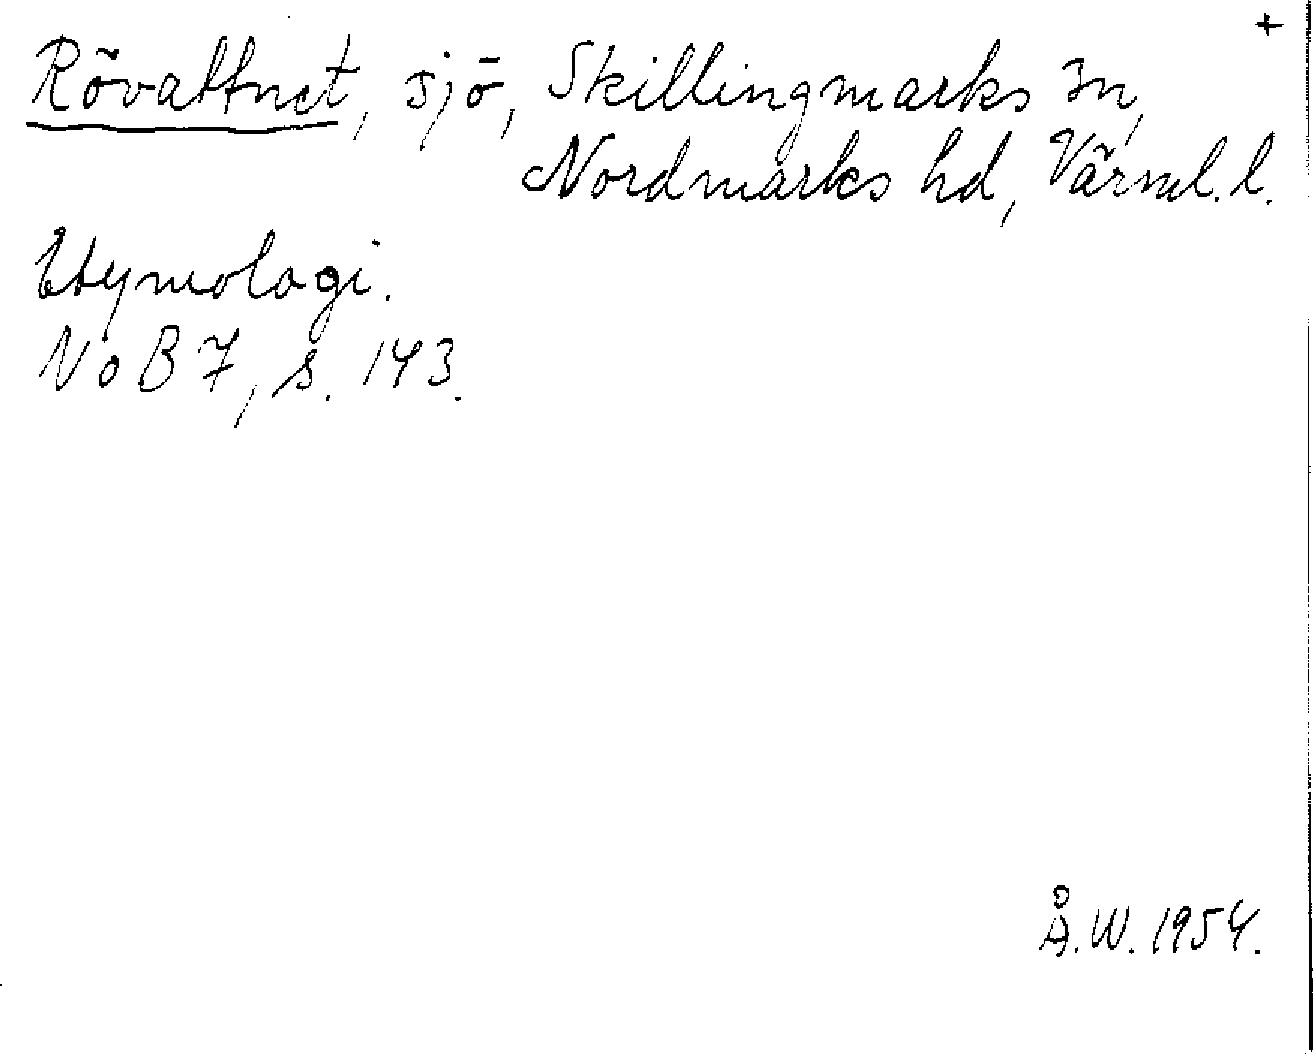 +
Rövattnet, sjö, Skillingmarks sn,
Nordmarks hd, Värml. l.
Etymologi.
NoB 7, s. 143.
Å.W. 1954.